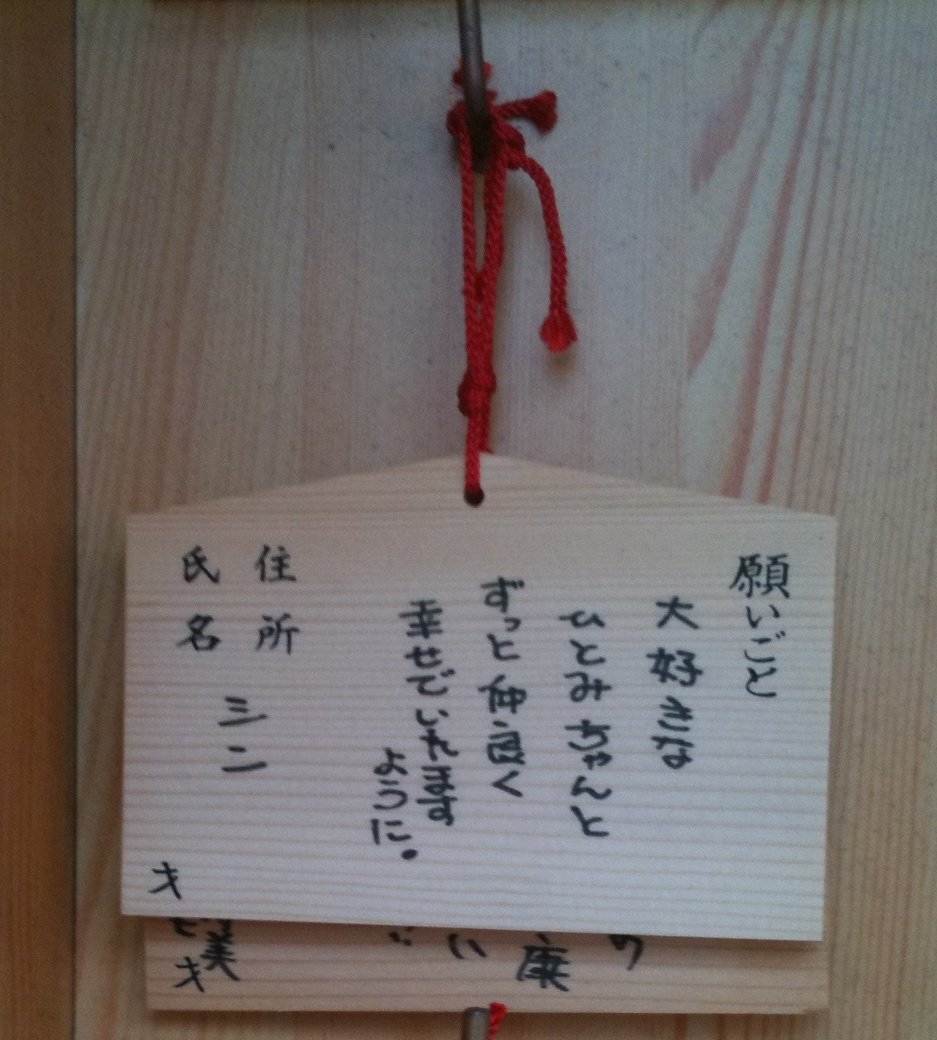 願いごと
大好きな
ひとみちゃんと
ずっと仲良く
幸せでいれます
ように。
住所
氏名
ミニ
才
の
康
い
美
才